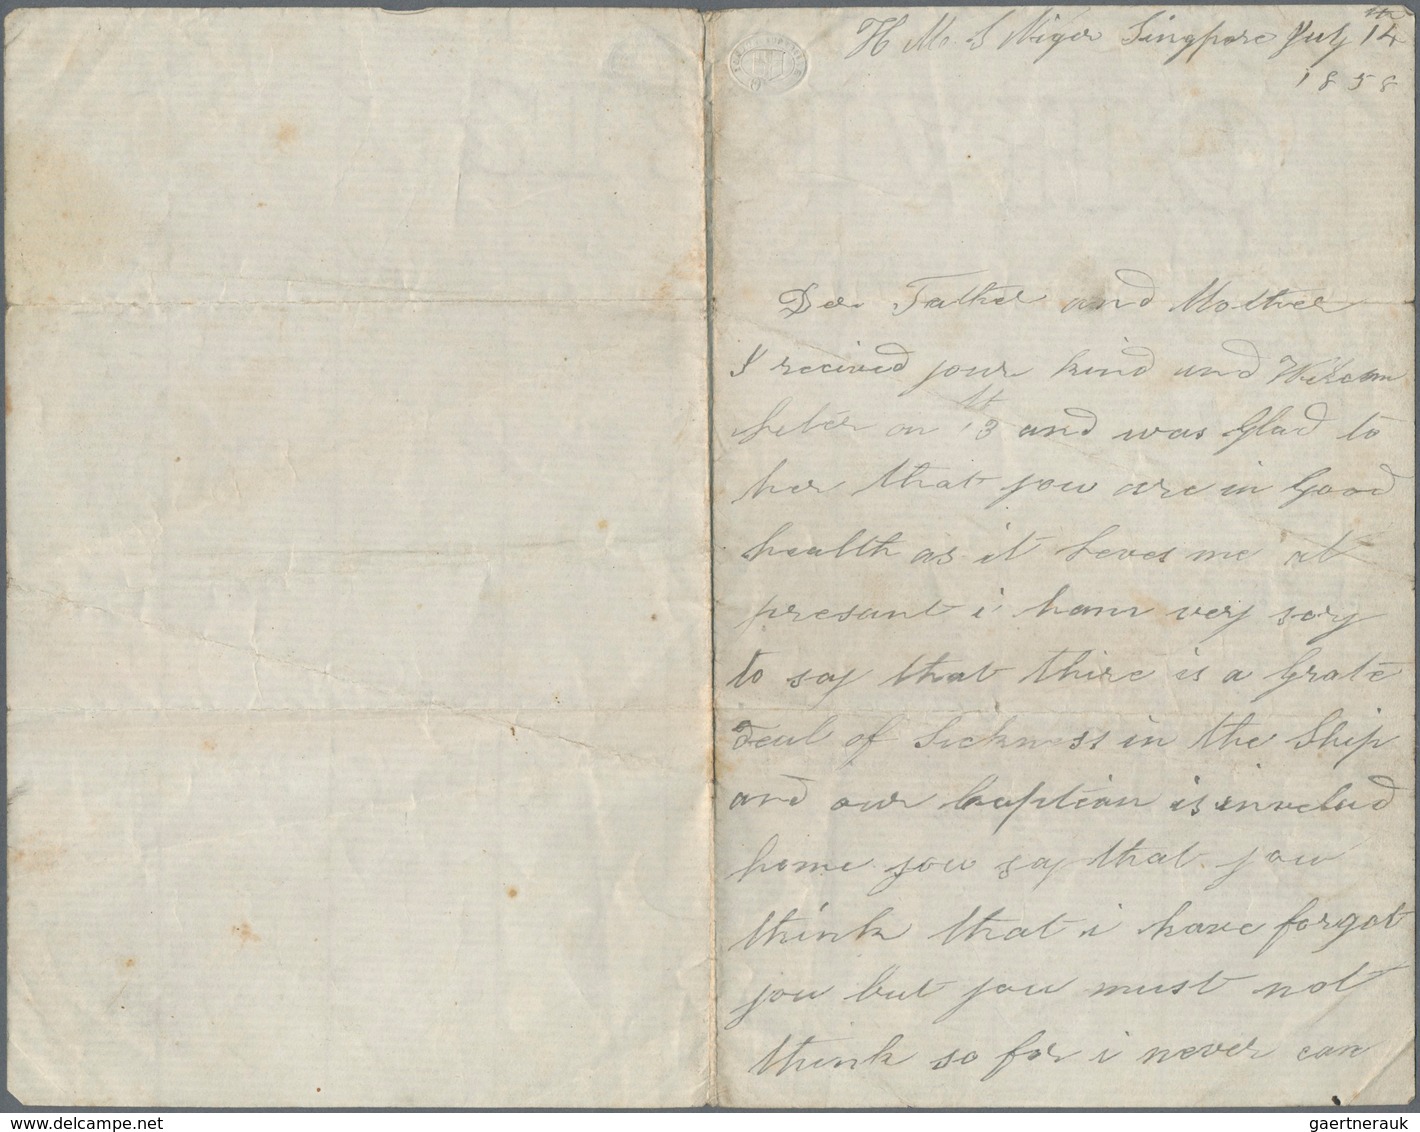 H M S Niger Singpore July 14th
1858
Der Father and Mother
I recived your kind and Wilcom
leter on 13th and was Glad to
her that you are in Good
health as it leves me at
presant i ham very sory
to say that thire is a Grate
deal of Sickness in the Ship
and our Captian is invelad
home you say that you
think that i have forgot
you but you must not
think so for i never can
gaertnerauk / delcampe.net